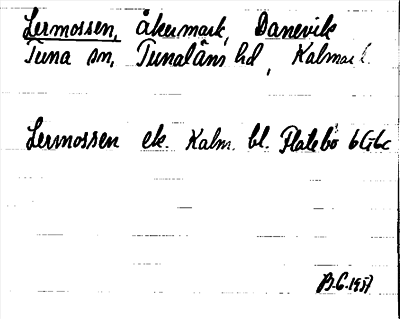 Lermossen, åkermark, Danevik
Tuna sn, Tunaläns hd, Kalmar l.
Lermossen ek. Kalm. bl. Flatebo 6G6c
B.G. 1957